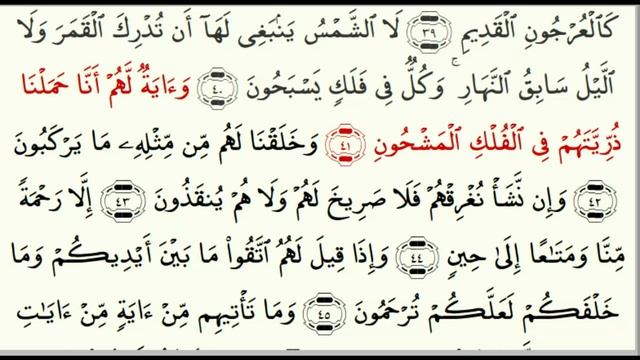 كَٱلْعُرْجُونِ ٱلْقَدِيمِ ٣٩ لَا ٱلشَّمْسُ يَنۢبَغِى لَهَآ أَن تُدْرِكَ ٱلْقَمَرَ وَلَا
ٱلَّيْلُ سَابِقُ ٱلنَّهَارِ ۚ وَكُلٌّ فِى فَلَكٍ يَسْبَحُونَ ٤٠ وَءَايَةٌ لَّهُمْ أَنَّا حَمَلْنَا
ذُرِّيَّتَهُمْ فِى ٱلْفُلْكِ ٱلْمَشْحُونِ ٤١ وَخَلَقْنَا لَهُم مِّن مِّثْلِهِۦ مَا يَرْكَبُونَ
٤٢ وَإِن نَّشَأْ نُغْرِقْهُمْ فَلَا صَرِيخَ لَهُمْ وَلَا هُمْ يُنقَذُونَ ٤٣ إِلَّا رَحْمَةً
مِّنَّا وَمَتَٰعًا إِلَىٰ حِينٍ ٤٤ وَإِذَا قِيلَ لَهُمُ ٱتَّقُوا۟ مَا بَيْنَ أَيْدِيكُمْ وَمَا
خَلْفَكُمْ لَعَلَّكُمْ تُرْحَمُونَ ٤٥ وَمَا تَأْتِيهِم مِّنْ ءَايَةٍ مِّنْ ءَايَٰتِ